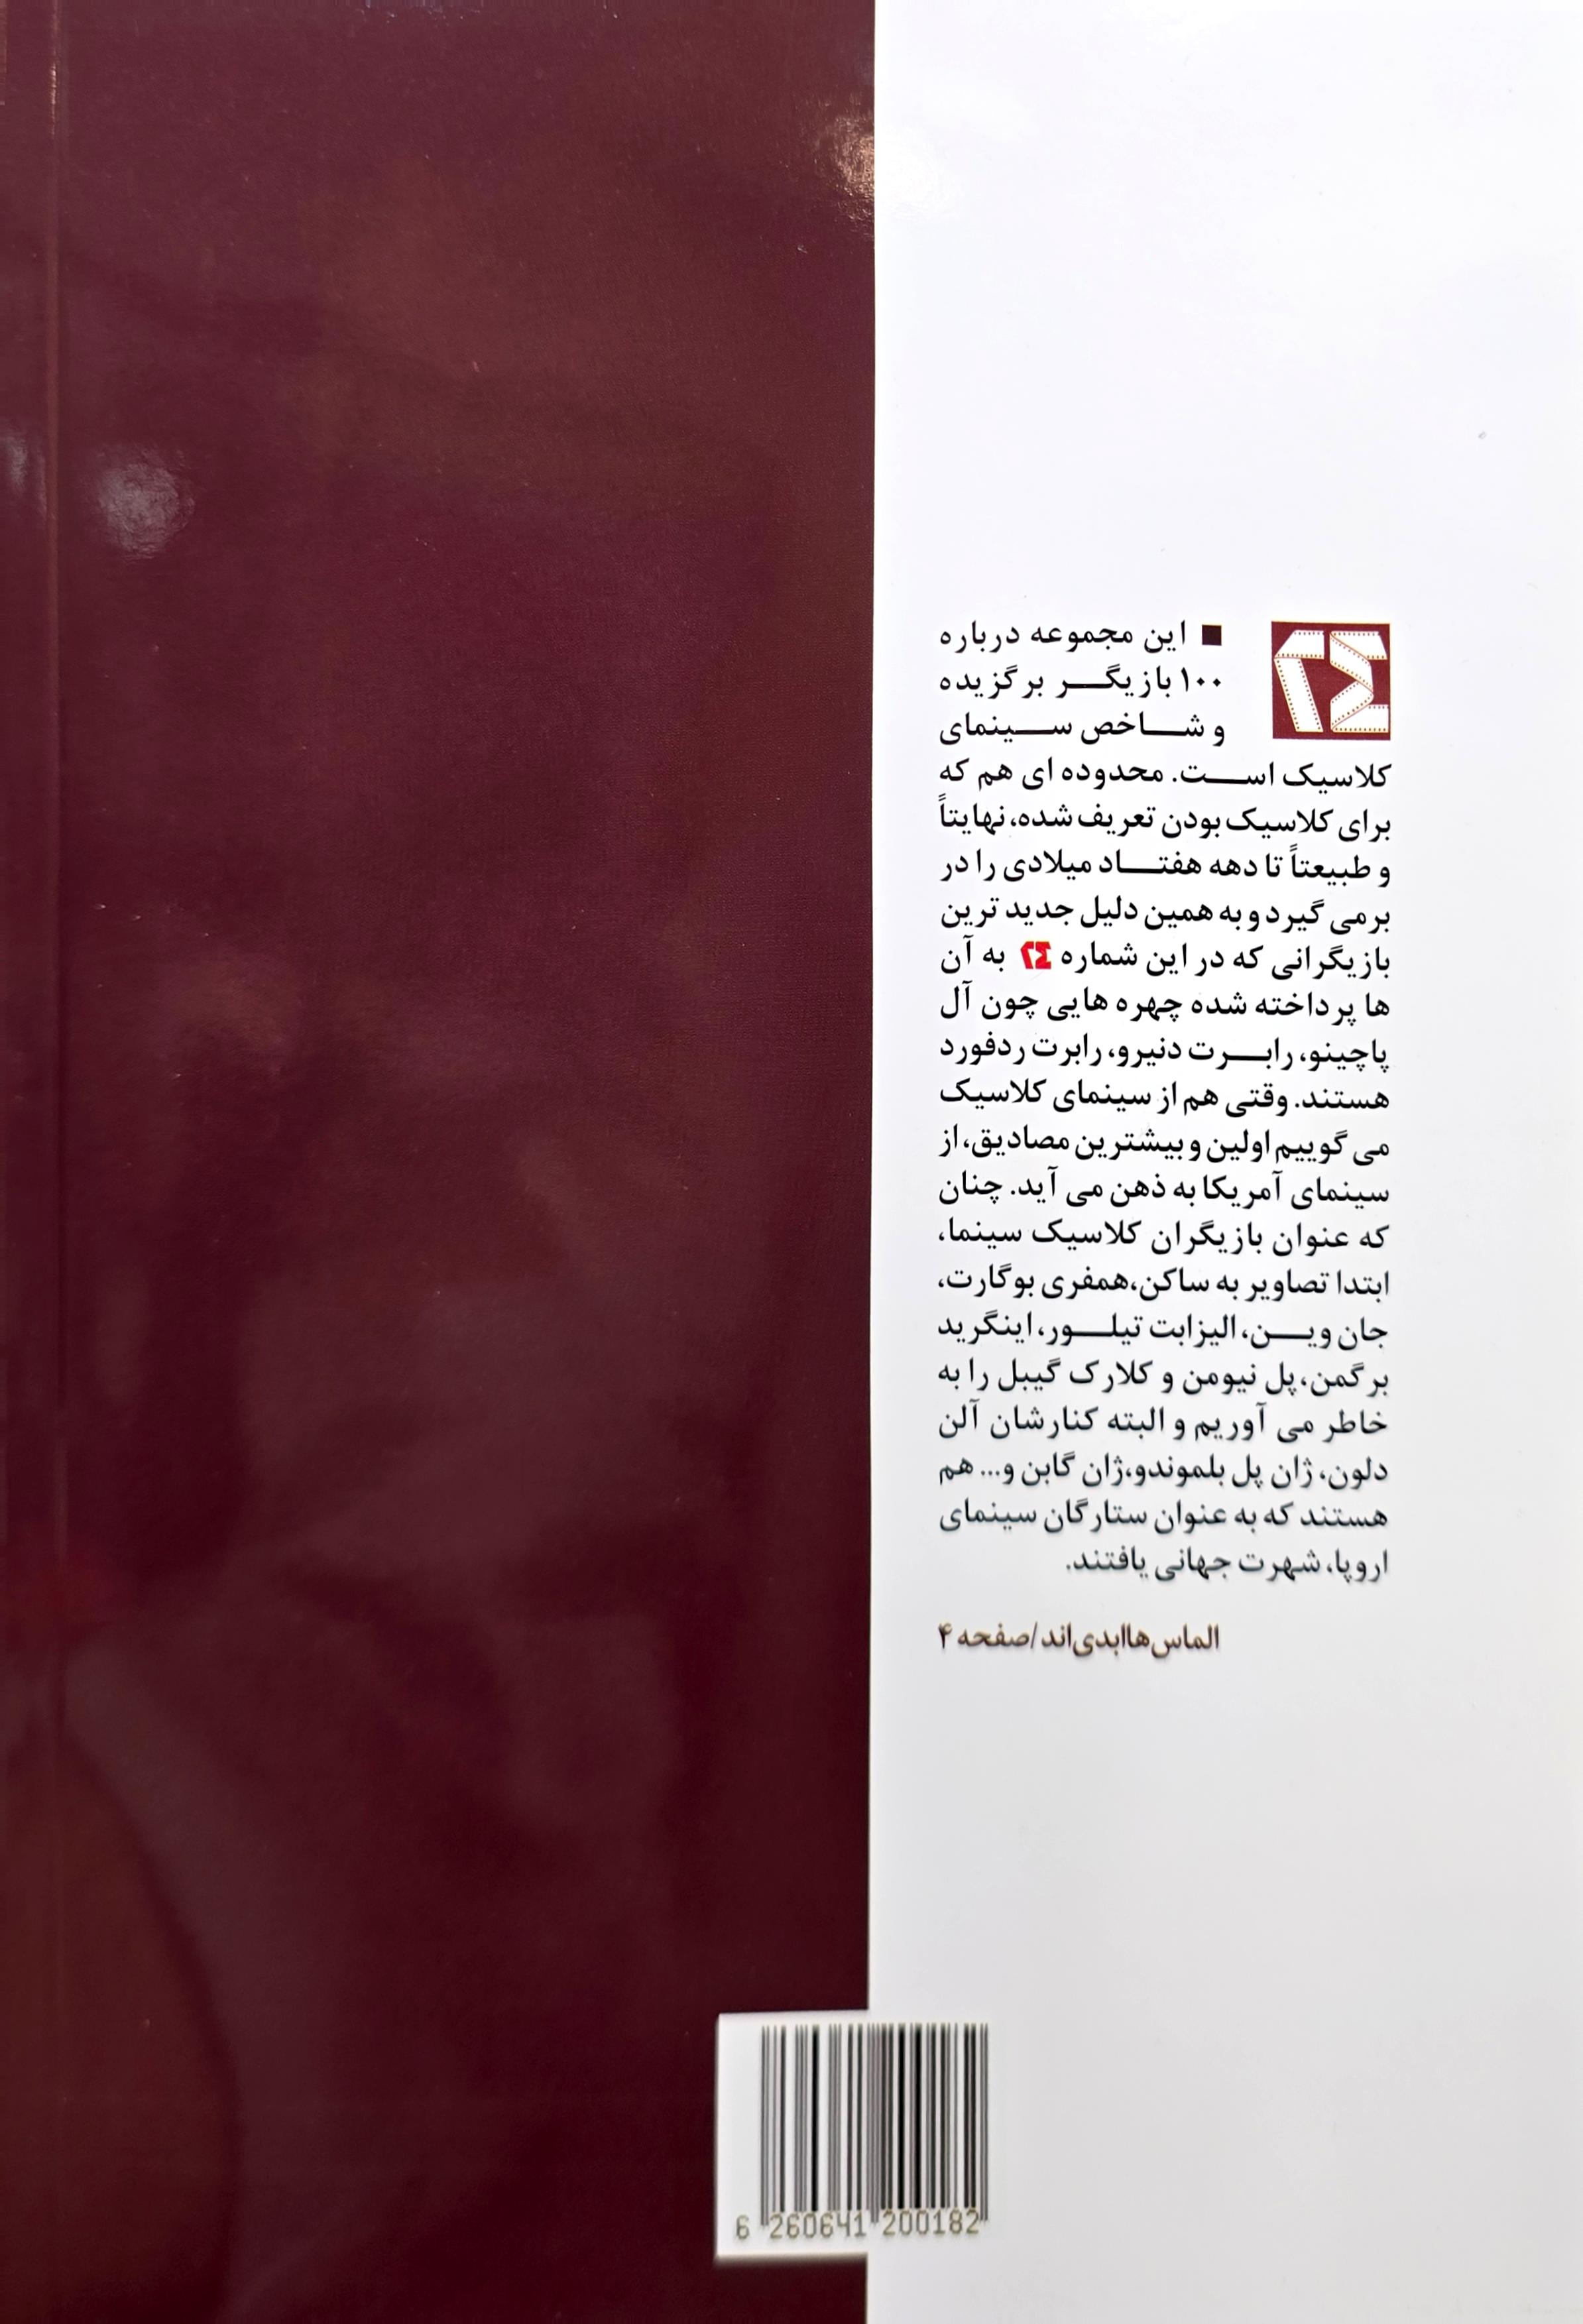 ۲۴
■ این مجموعه درباره
۱۰۰ بازیگر برگزیده
و شاخص سینمای
کلاسیک است. محدوده ای هم که
برای کلاسیک بودن تعریف شده، نهایتاً
و طبیعتاً تا دهه هفتاد میلادی را در
برمی گیرد و به همین دلیل جدید ترین
بازیگرانی که در این شماره ۲۴ به آن
ها پرداخته شده چهره هایی چون آل
پاچینو، رابرت دنیرو، رابرت ردفورد
هستند. وقتی هم از سینمای کلاسیک
می گوییم اولین و بیشترین مصادیق، از
سینمای آمریکا به ذهن می آید. چنان
که عنوان بازیگران کلاسیک سینما،
ابتدا تصاویر به ساکن، همفری بوگارت،
جان وین، الیزابت تیلور، اینگرید
برگمن، پل نیومن و کلارک گیبل را به
خاطر می آوریم و البته کنارشان آلن
دلون، ژان پل بلموندو، ژان گابن و... هم
هستند که به عنوان ستارگان سینمای
اروپا، شهرت جهانی یافتند.
الماس‌ها ابدی‌اند/صفحه ۴
6 260641 200182